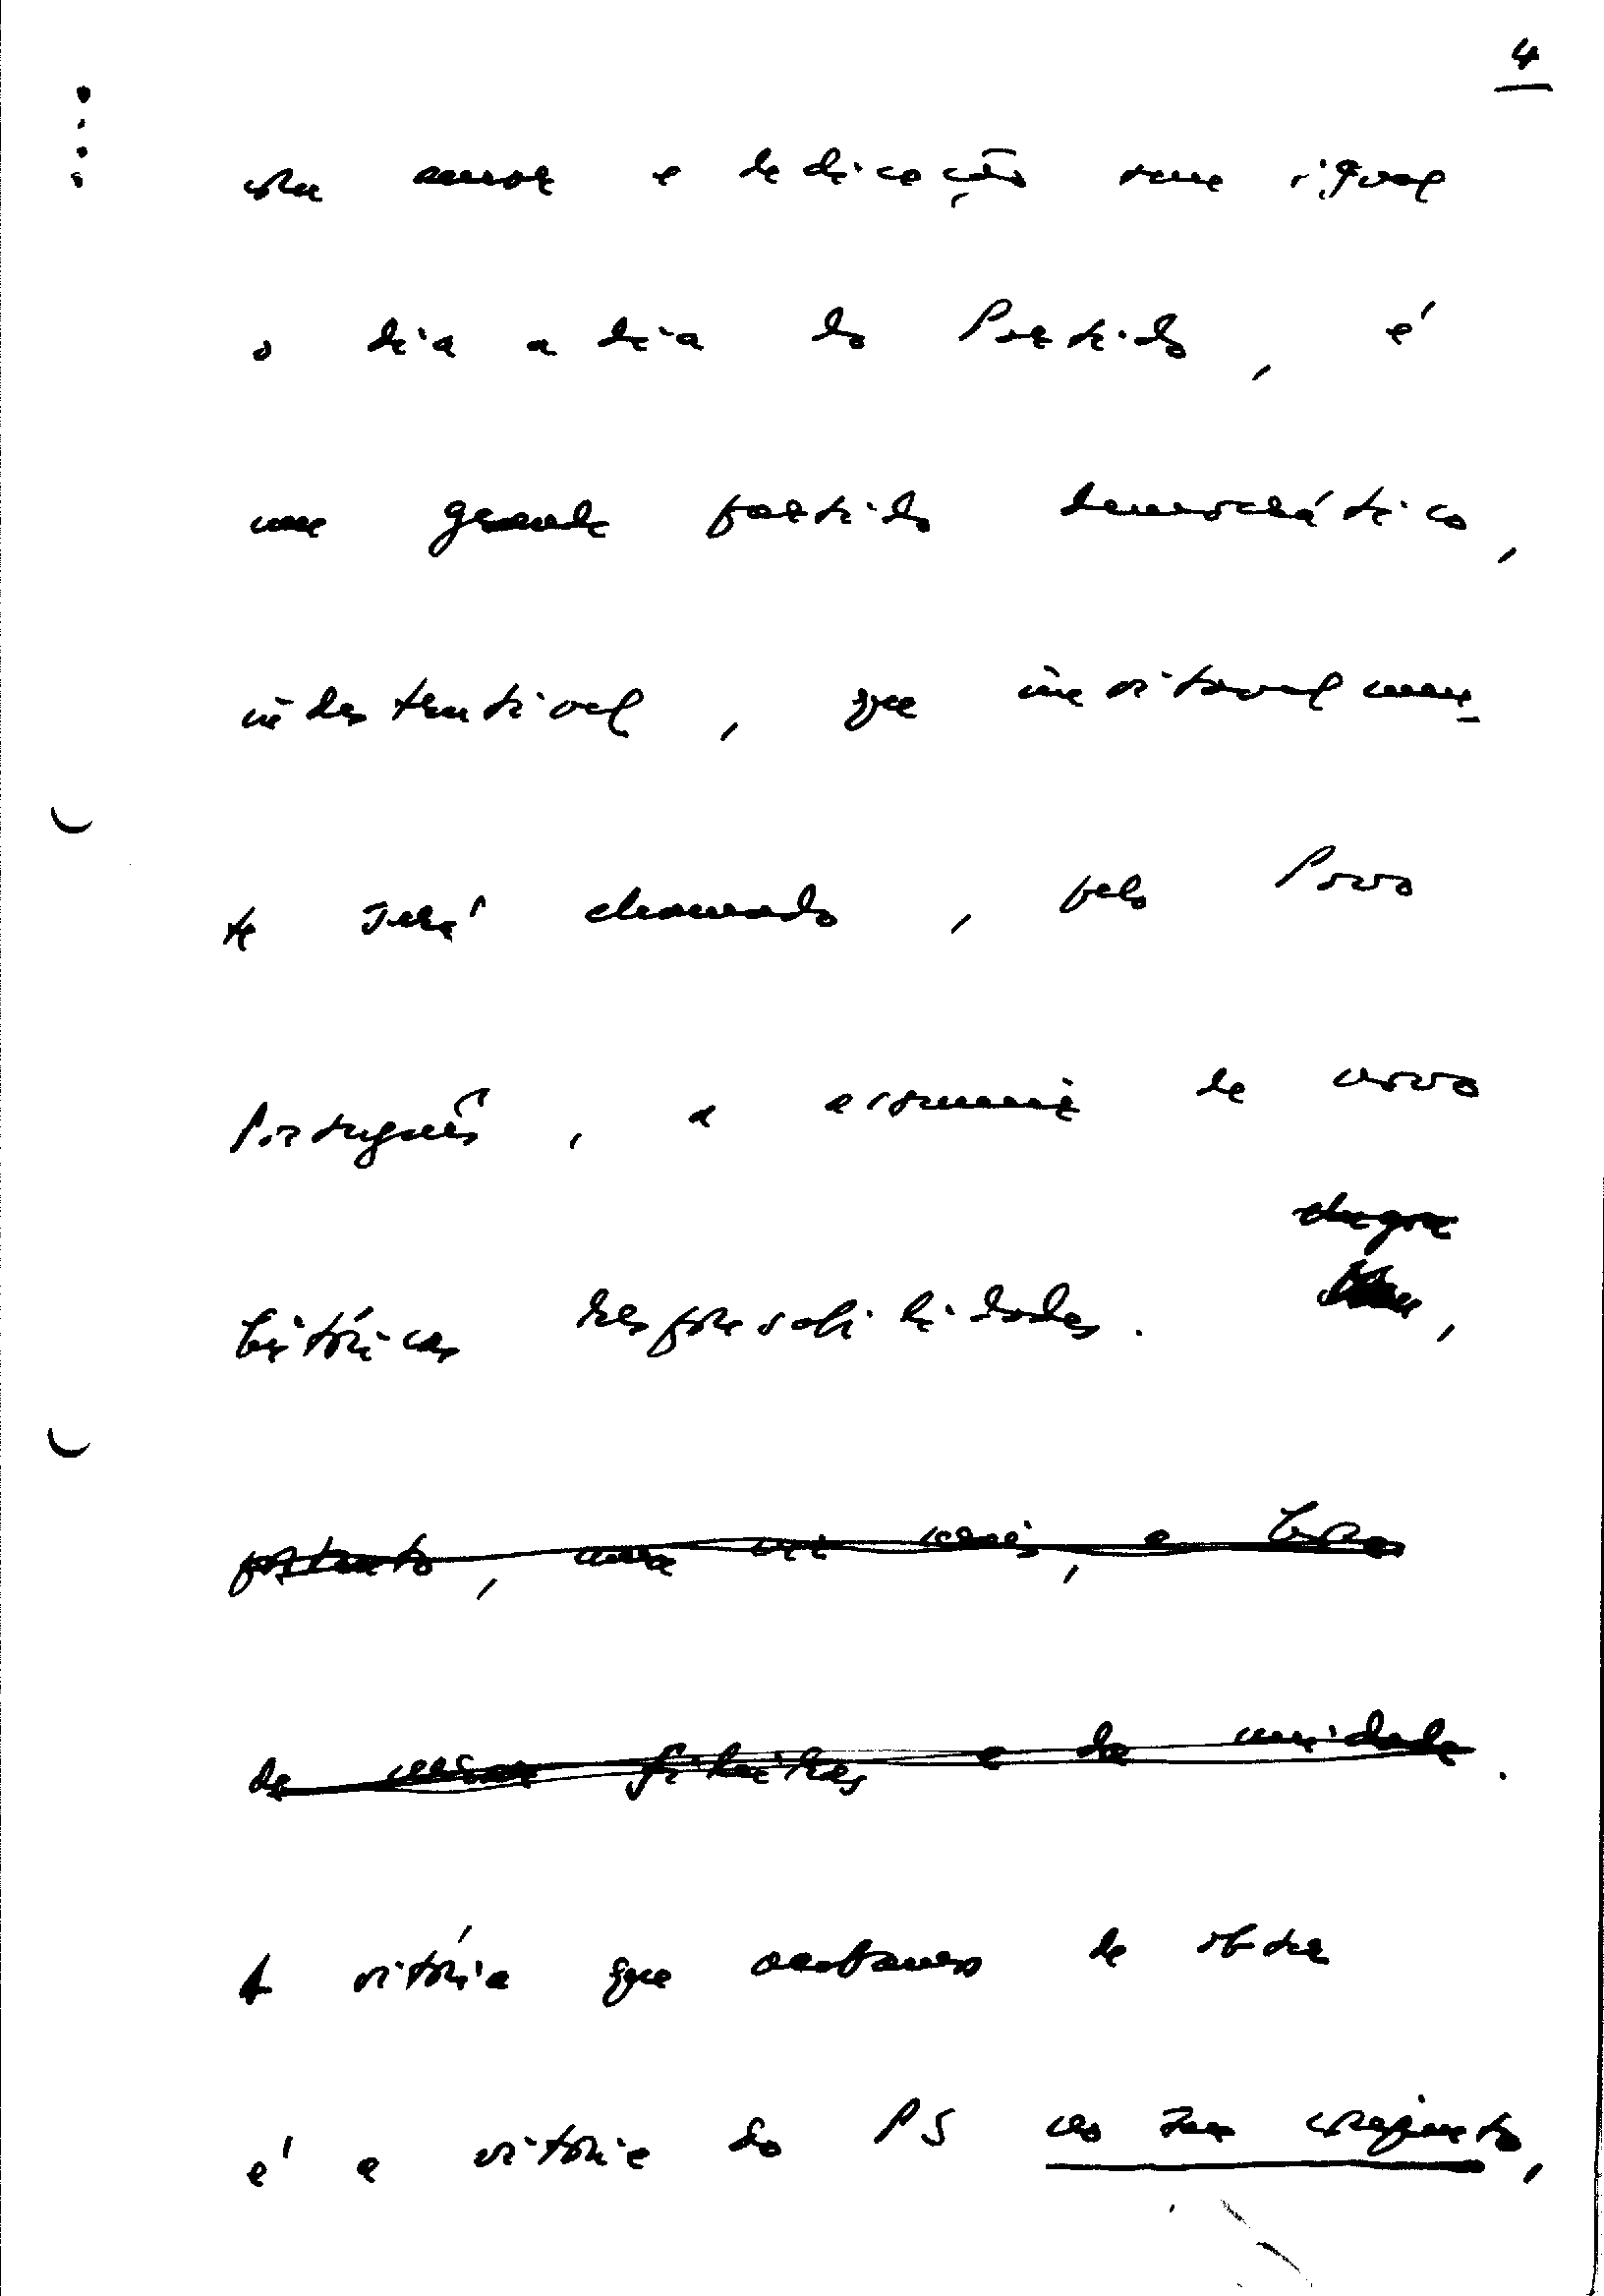 4
com amor e dedicação sem igual
o dia a dia do Partido, é
um grande partido democrático,
indestrutível, que inevitavelmen_
te será chamado, pelo Povo
Português, a assumir de novo
históricas responsabilidades.
portanto, uma vez mais, a hora
de cerrar fileiras e de unidade.
A vitória que acabamos de obter
é a vitória do PS no seu conjunto,